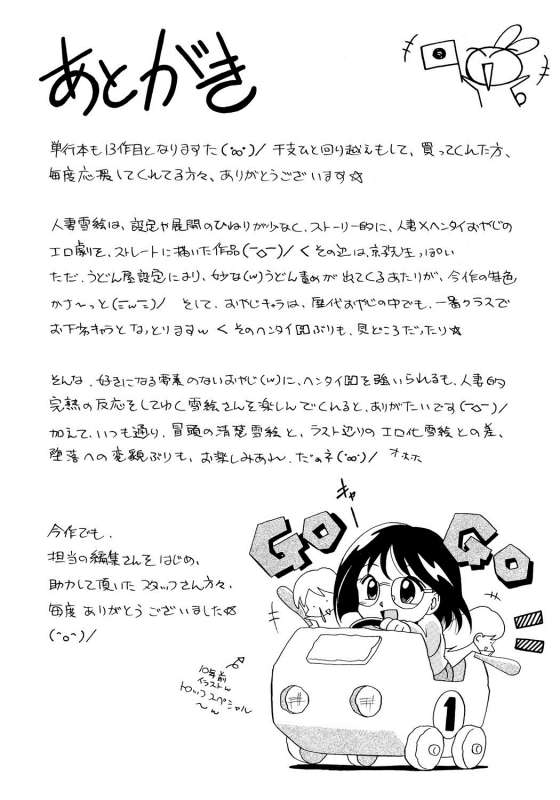 あとがき
単行本も13作目となりますた(°∞°)/ 干支ひと回り越えもして、買ってくれた方、
毎度応援してくれてる方々、ありがとうございます☆
人妻雪絵は、設定や展開のひねりが少なく、ストーリー的に、人妻×ヘンタイおやじの
エロ劇を、ストレートに描いた作品(￣○￣)/ くその辺は、京先生っぽい
ただ、うどん屋設定により、妙な(w)うどん責めが出てくるあたりが、今作の特色
かさ〜っと(ΞωΞ)/ そして、おやじキャラは、歴代おやじの中でも、一番クラスで
お下劣キャラとなっとりますw くそのヘンタイ図ぶりも、見どころだったり☆
そんな、好きになる要素のないおやじ(w)に、ヘンタイ図を強いられるも、人妻的
完熟の反応をしてゆく雪絵さんを楽しんでくれると、ありがたいです(￣○￣)/
加えて、いつも通り、冒頭の清楚雪絵と、ラスト辺りのエロ化雪絵との差、
堕落への変貌ぶりも、お楽しみあれ、だぁネ(°∞°)/ オホホ
今作でも、
担当の編集さんをはじめ、
助力して頂いたスタッフさん方々、
毎度ありがとうございました☆
(^o^)/
キャー
GO
GO
10年前
イラストw
トップスペシャル
〜w
1